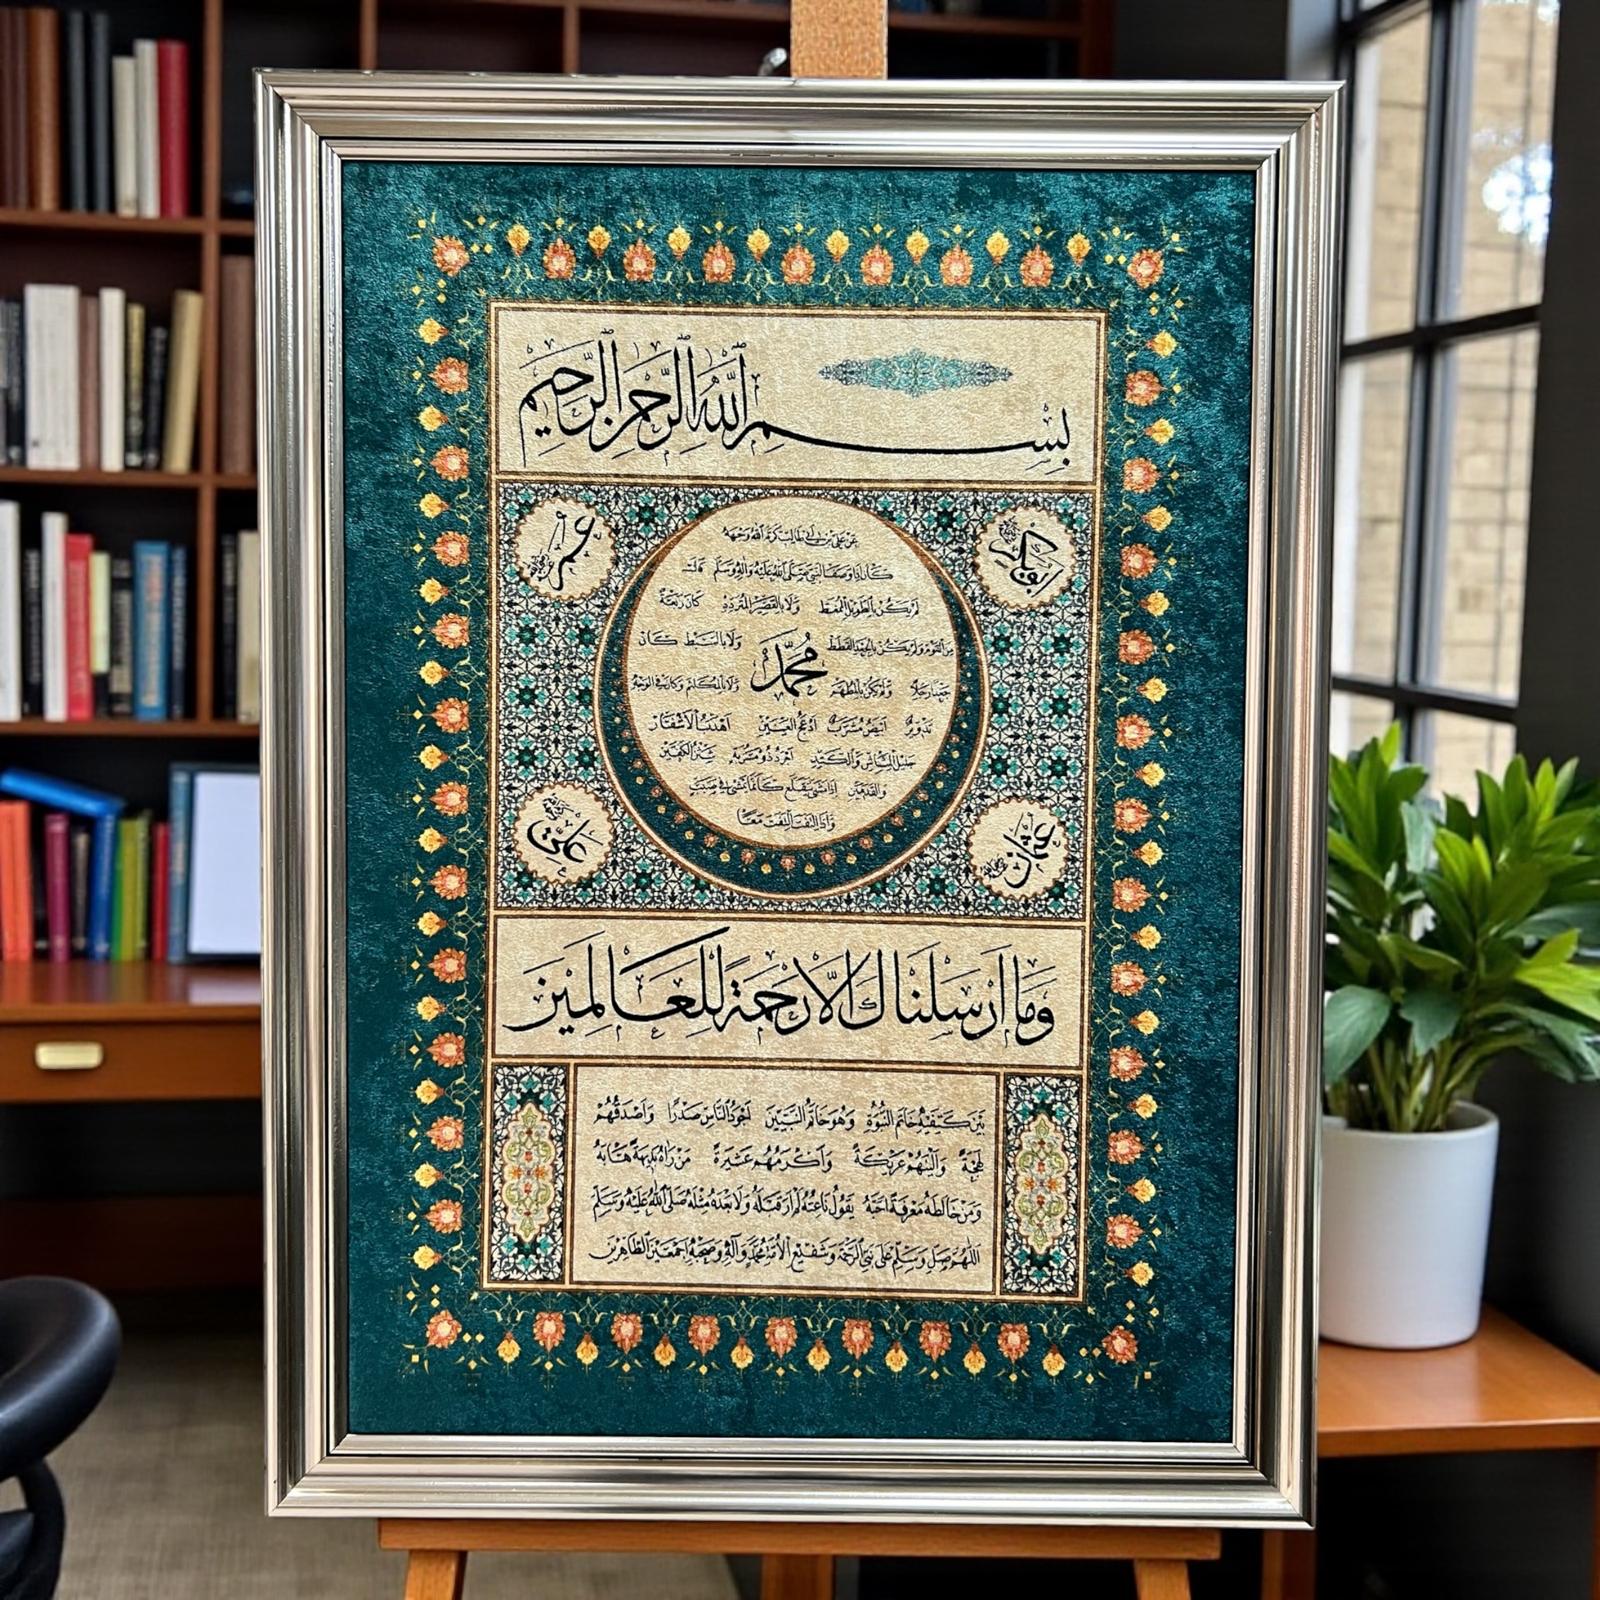 بسم الله الرحمن الرحيم
ابوبكر
عمر
عن علي بن ابي طالب كرم الله وجهه
كان اذا وصف النبي صلى الله عليه واله وسلم قال
لم يكن بالطويل الممغط ولا بالقصير المتردد كان ربعة
من القوم ولم يكن بالجعد القطط ولا بالسبط كان
محمد
جعدا رجلا ولم يكن بالمطهم ولا بالمكلثم وكان في الوجه
تدوير ابيض مشرب ادعج العينين اهدب الاشفار
جليل المشاش والكتد اجرد ذو مسربة شثن الكفين
والقدمين اذا مشى يتقلع كانما يمشي في صبب
واذا التفت التفت معا
عثمان
علي
وما ارسلناك الا رحمة للعالمين
بين كتفيه خاتم النبوة وهو خاتم النبيين اجود الناس صدرا واصدقهم
لهجة والينهم عريكة واكرمهم عشيرة من راه بديهة هابه
ومن خالطه معرفة احبه يقول ناعته لم ار قبله ولا بعده مثله صلى الله عليه وسلم
اللهم صل وسلم على نبي الرحمة وشفيع الامة محمد واله وصحبه اجمعين الطاهرين